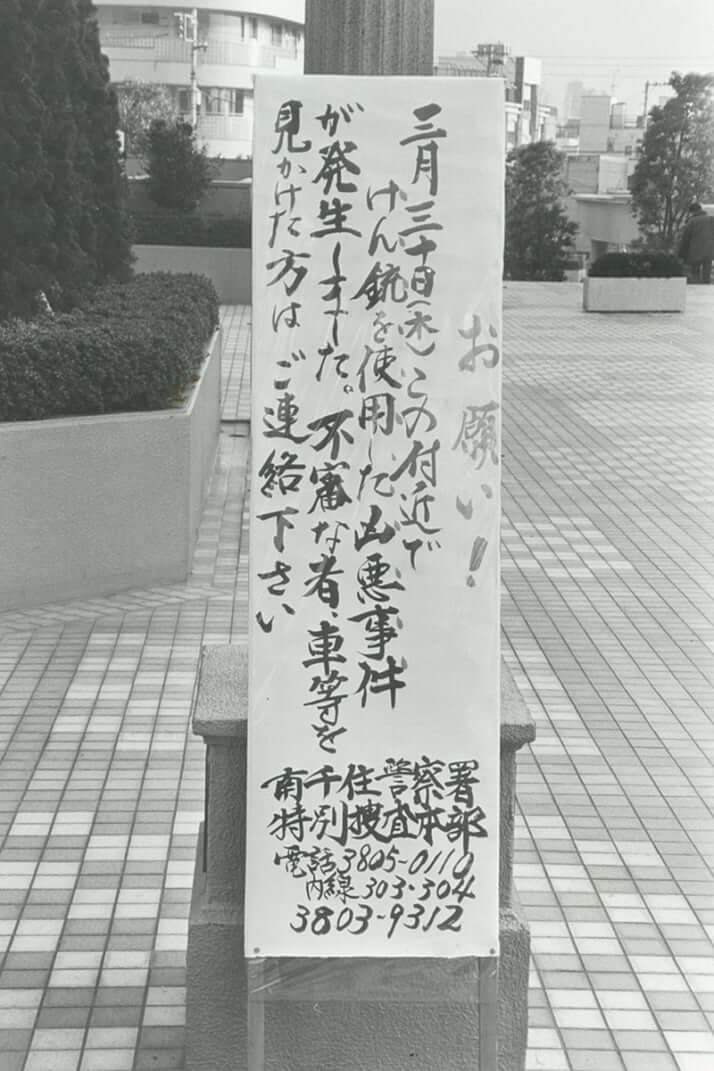 お願い！
三月三十日（木）この付近で
けん銃を使用した凶悪事件
が発生しました。不審な者、車等を
見かけた方はご連絡下さい
南千住警察署
特別捜査本部
電話3805-0110
内線303・304
3803-9312